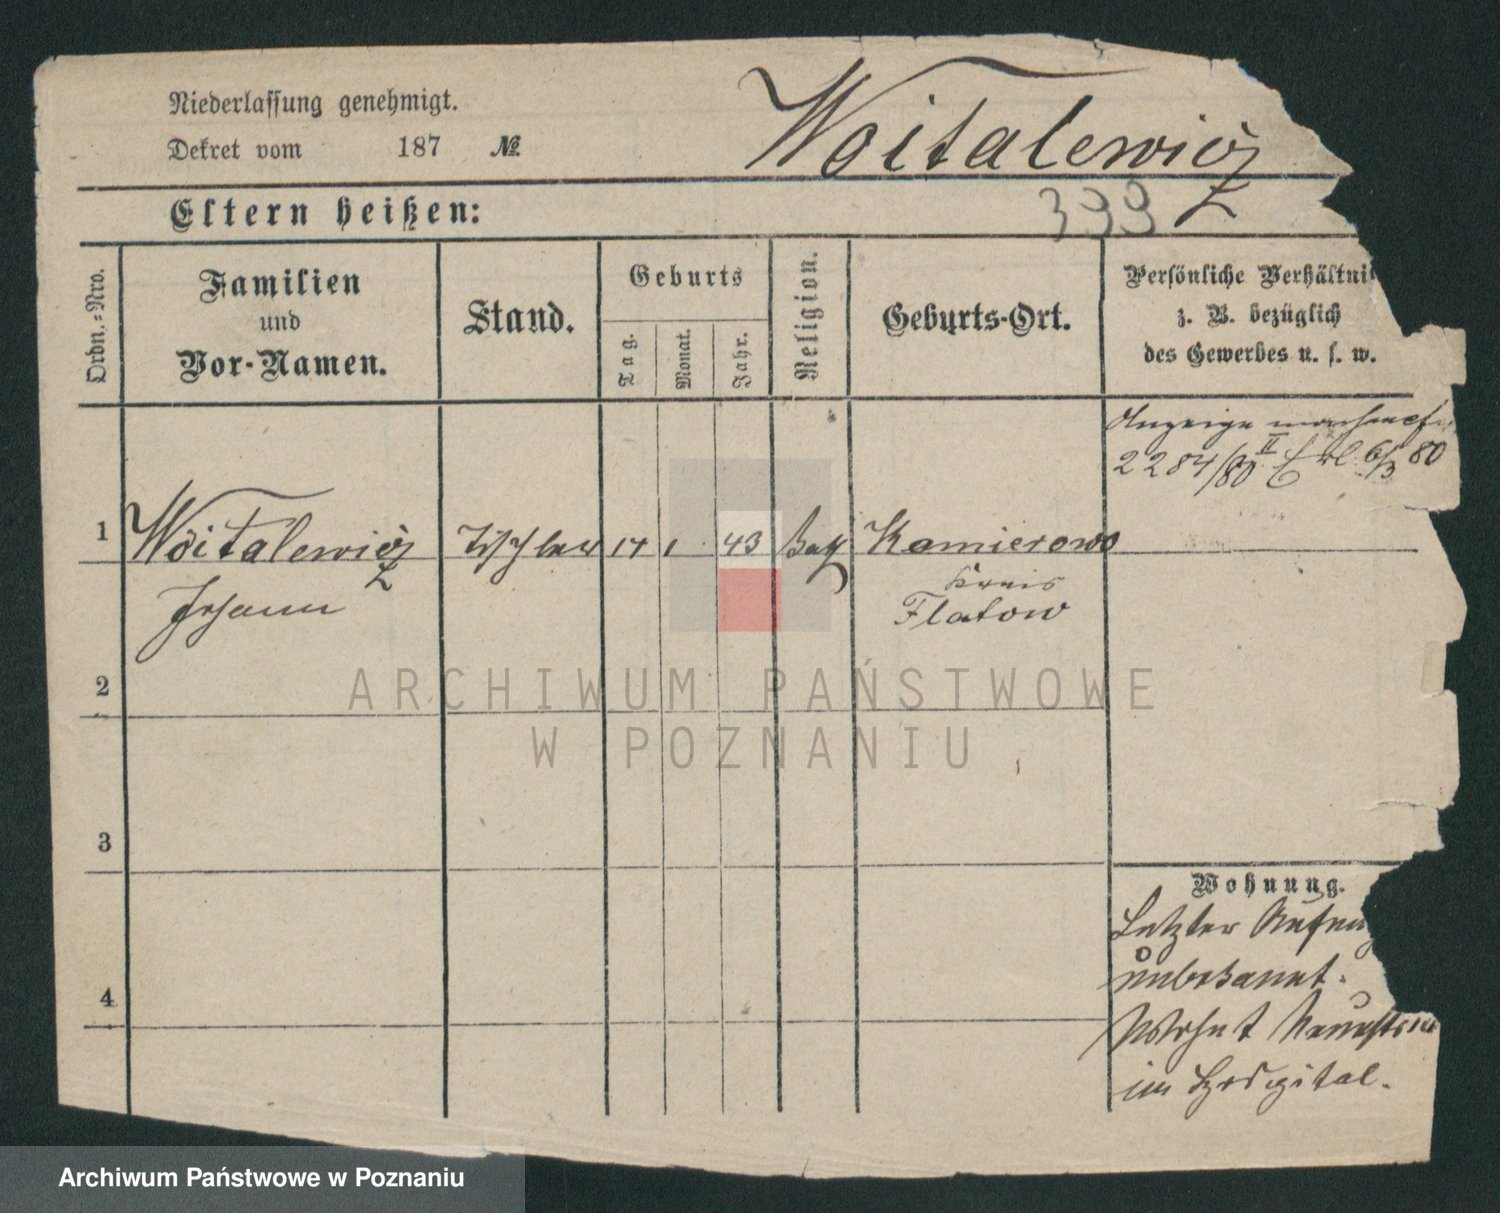 Niederlassung genehmigt.
Dekret vom 187 №
Woitalewicz
399
Eltern heißen:
Ordn.-Nro.
Familien
und
Vor-Namen.
Stand.
Geburts
Tag.
Monat.
Jahr.
Religion.
Geburts-Ort.
Persönliche Verhältni
z. B. bezüglich
des Gewerbes u. s. w.
Anzeige
2284/80 II 6/3 80
1 Woitalewicz Tischler 14 1 43 Kath Kamierowo
Johann
Kreis
Flatow
2
3
4
Wohnung.
Letzter
unbekannt.
Wohnt
im Hospital.
ARCHIWUM PAŃSTWOWE
W POZNANIU
Archiwum Państwowe w Poznaniu